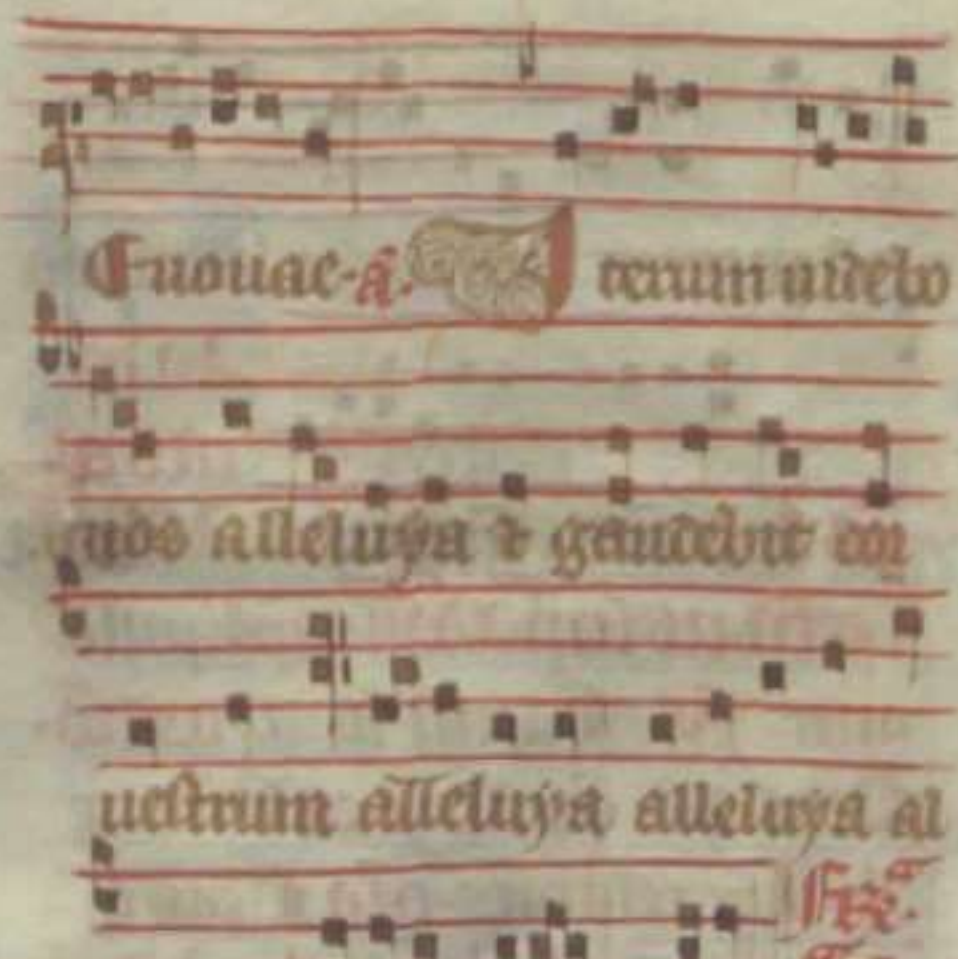 Euouae. a. Iterum uidebo
uos alleluya et gaudebit cor
uestrum alleluya alleluya al